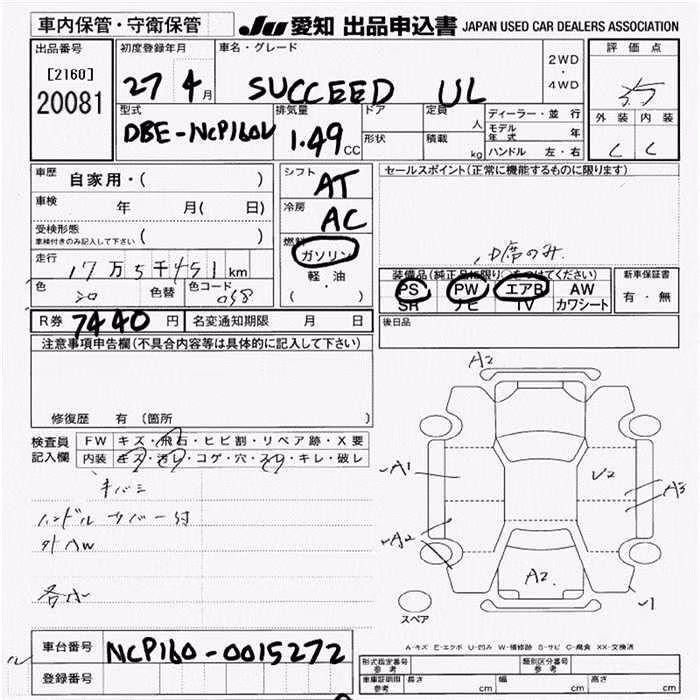 車内保管・守衛保管 JU 愛知 出品申込書 JAPAN USED CAR DEALERS ASSOCIATION
出品番号 初度登録年月 車名・グレード 評価点
[2160] 2WD
20081 27 4月 SUCCEED UL ・
4WD
外装 内装
型式 排気量 ドア 定員 ディーラー・並行
DBE-NCP160V 1.49CC 人 モデル年式 年
形状 積載 kg ハンドル 左・右
C C
車歴 自家用・( ) シフト AT セールスポイント(正常に機能するものに限ります)
車検 年 月( 日) 冷房 AC
受検形態 ( )
車検付きのみ記入して下さい
燃料 ガソリン
走行 17万5千451km 軽・油
装備品(純正品に限り○をつけてください) 新車保証書
色 色替 色コード 058 (・)
PS PW エアB AW 有・無
SR ナビ TV カワシート
R券 7440円 名変通知期限 月 日 後日品
注意事項申告欄(不具合内容等は具体的に記入して下さい)
修復歴 有 〔箇所 〕
検査員 FW キズ・飛石・ヒビ割・リペア跡・X要
記入欄 内装 キズ・汚レ・コゲ・穴・スレ・キレ・破レ
キバミ
A2
A1
V2
A3
A2
A2
スペア
外AW
車台番号 NCP160-0015272
登録番号
A-キズ E-エクボ U-凹み W-補修跡 S-サビ C-腐食 XX-交換済
形式指定番号 参考 類別区分番号 参考
車庫証明用 参考 長さ cm 幅 cm 高さ cm